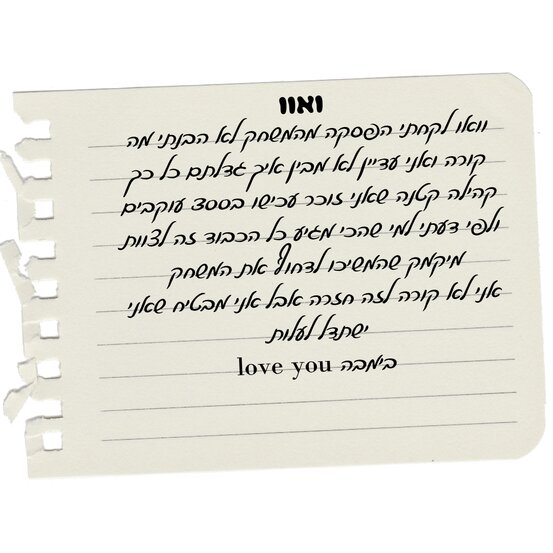 ואוו
וואו לקחתי הפסקה מהמשחק לא הבנתי מה
קורה ואני עדיין לא מבין איך גדלתם כל כך
קהילה קטנה שאני זוכר עכשיו בפססצ עוקבים
ולפי דעתי למי שהכי מגיע כל הכבוד זה לצוות
מיקמק שהמשיכו לדחוף את המשחק
אני לא קורה לזה חזרה אבל אני מבטיח שאני
ישתדל לעלות
love you בימבה